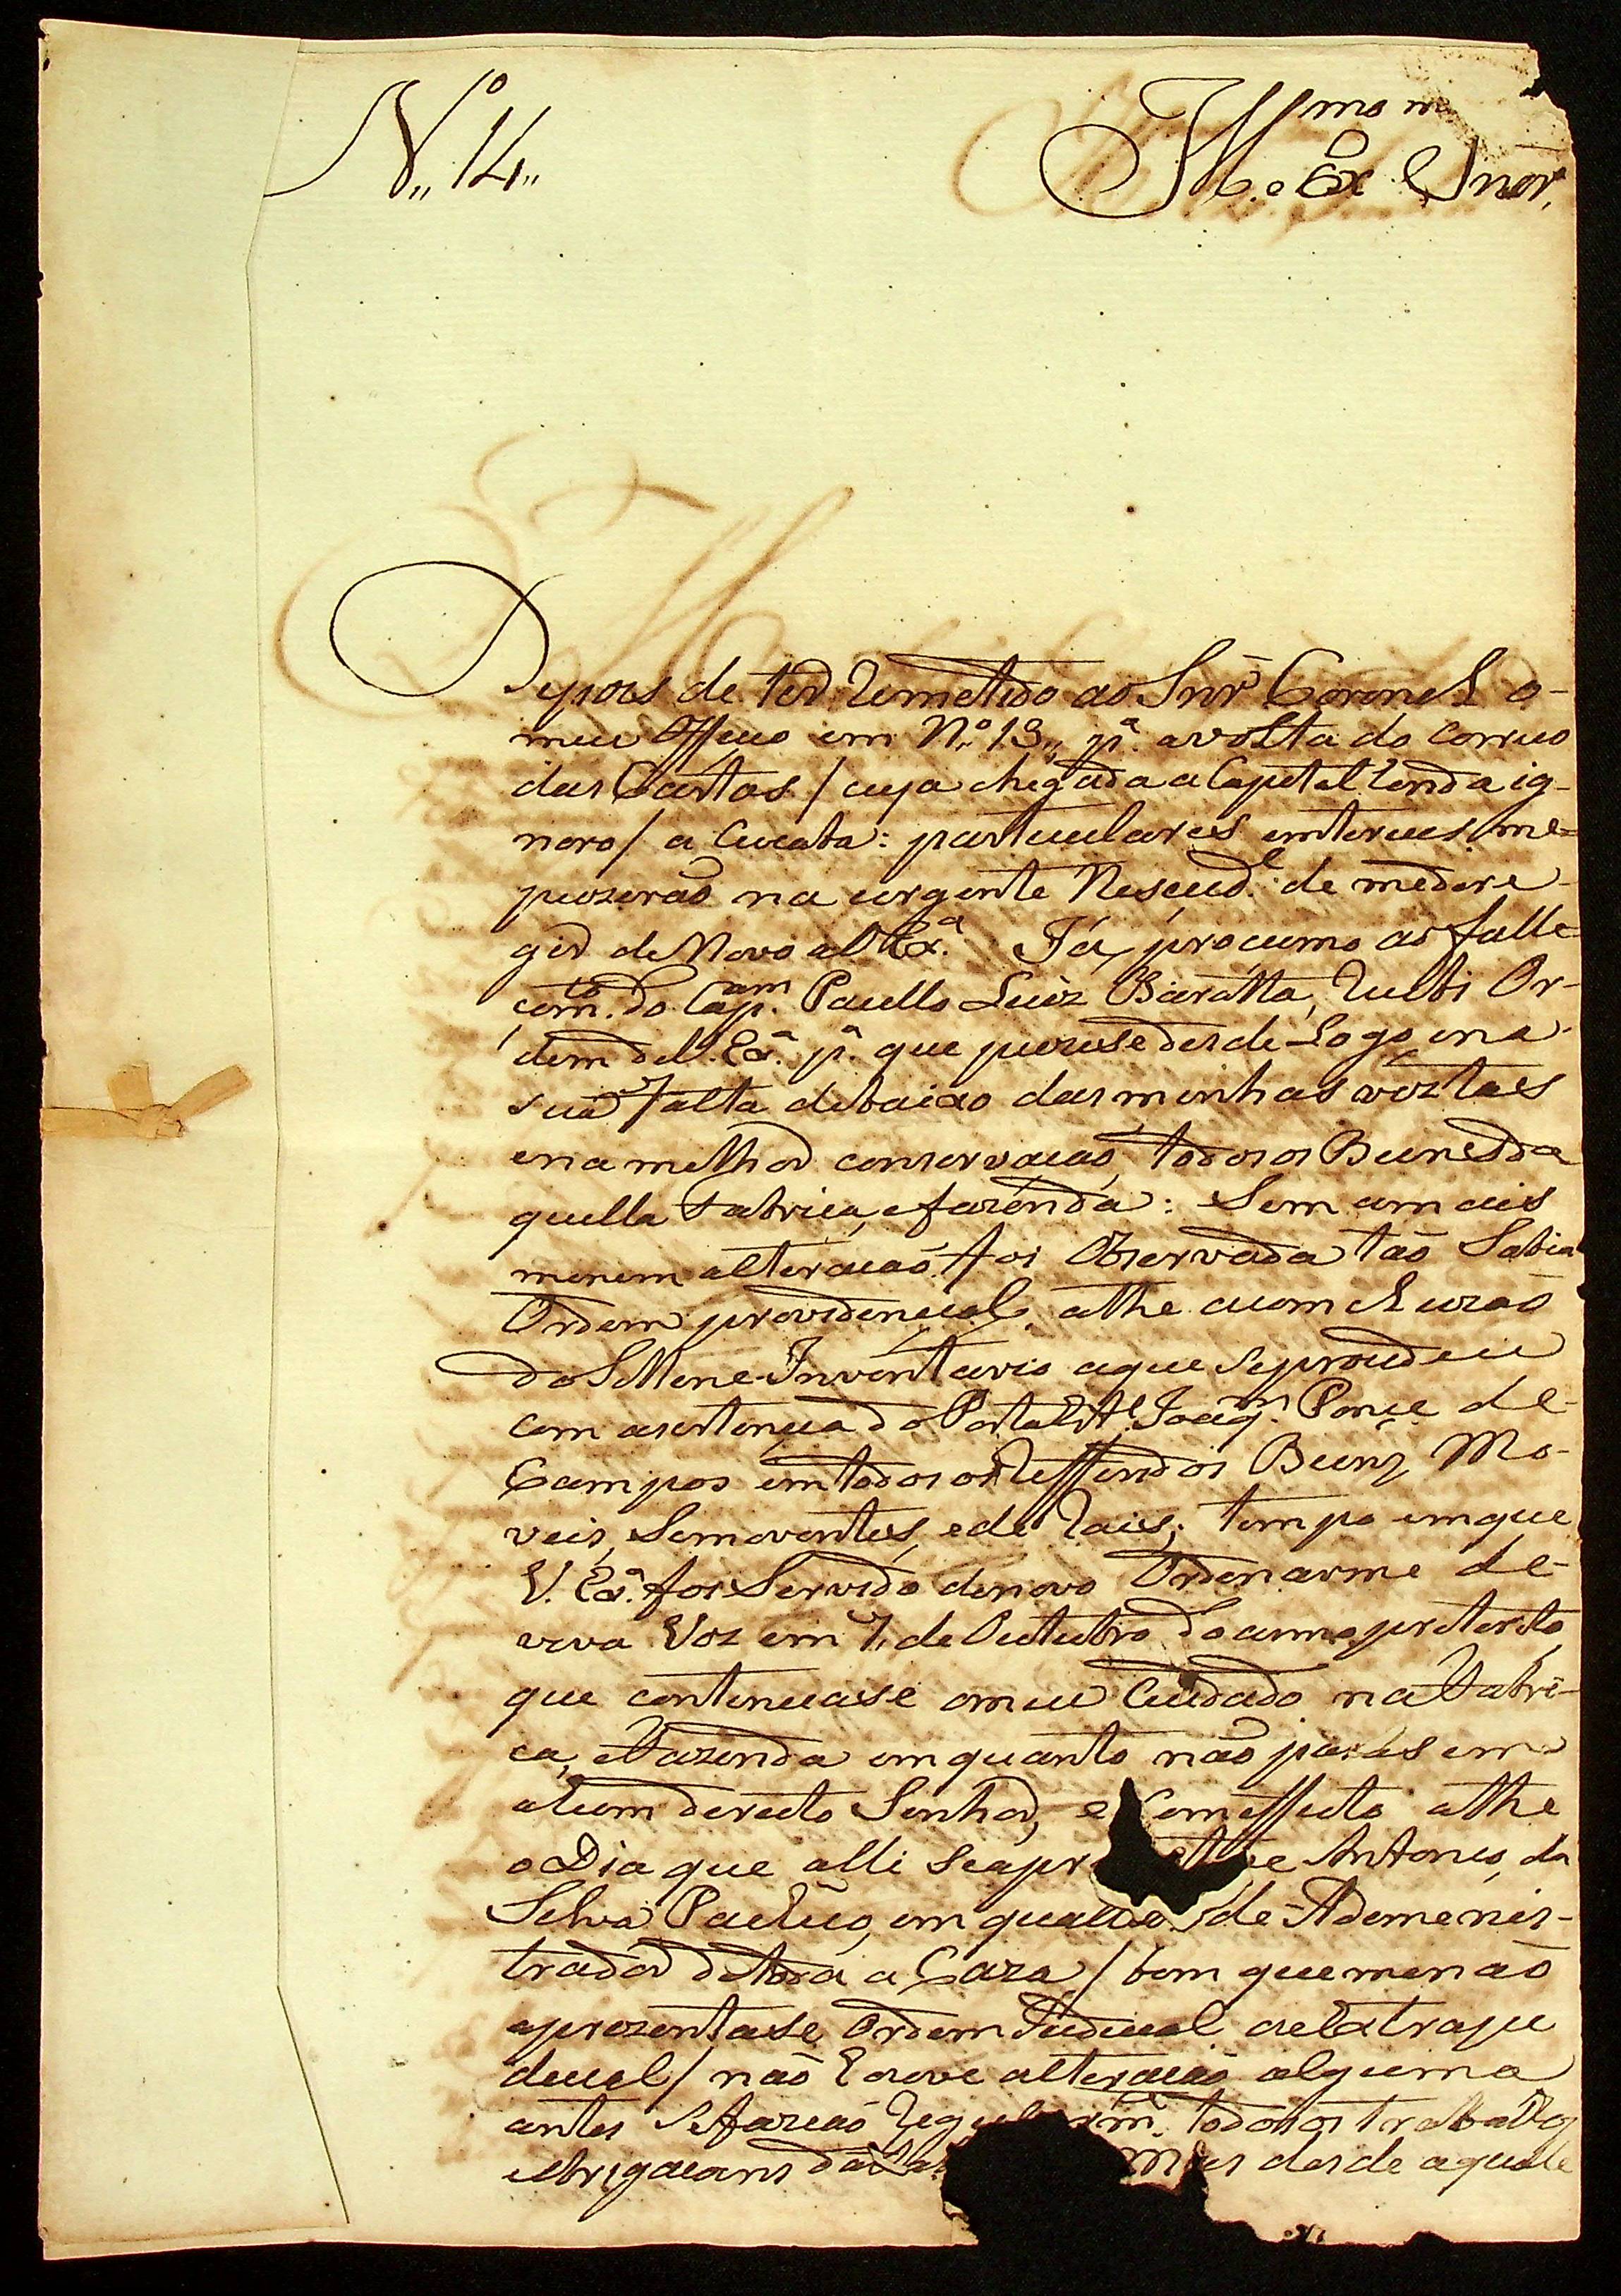 N.º 14,,
Ill.mo e Ex.mo Snor.
Depois de ter Remetido ao Snr Coronel o-
meu Officio em N.º 13,, p.ª a volta do Correio
das Cartas / cuja chegada a Capital Londa ig-
noro / a Cuenta: particulares
puzeraõ na urgente Nescid.e de me dere-
gir de Novo a V. Ex.ª Já, proximo ao falle-
cim.to do Cap.am Paullo Luiz Baratta, Recbi Or-
dem de V. Ex.ª p.ª que puzese des de Logo, e na
sua falta debaixo das minhas vistas
e na melhor conservacaõ, todos os Beines da
quella Fabrica, e fazenda: Sem a mais
menem alteracaõ foi Observada taõ Sabia
Ordem providencial athe a comcluzaõ
do Sollene Inventario a que se procedeu
com a sistencia do Porta Est.e Joaq.m Ponce de-
Campos em todos os Refferidos Beins Mo-
veis, Semoventes, e de Rais; tempo em que
V. Ex.ª foi Servido de novo Ordenarme de-
viva Voz em 7, de Outubro do anno preterito
que continuase o meu Cuidado na Fabri-
ca, e Fazenda em quanto naõ pasás em
a hum dereito Senhor, e Com effeito athe
o Dia que alli se apr Antonio da
Selva Pacheco, em qualide de Ademenis-
trador de toda a Caza / bem que me naõ
aprezentase Ordem Judicial ou Extraju
decial / naõ Houve alteracaõ alguma
antes se fazeaõ Reg rm.e todos os trabalhos
e Obrigacoins da Faz Mas des de aquelle